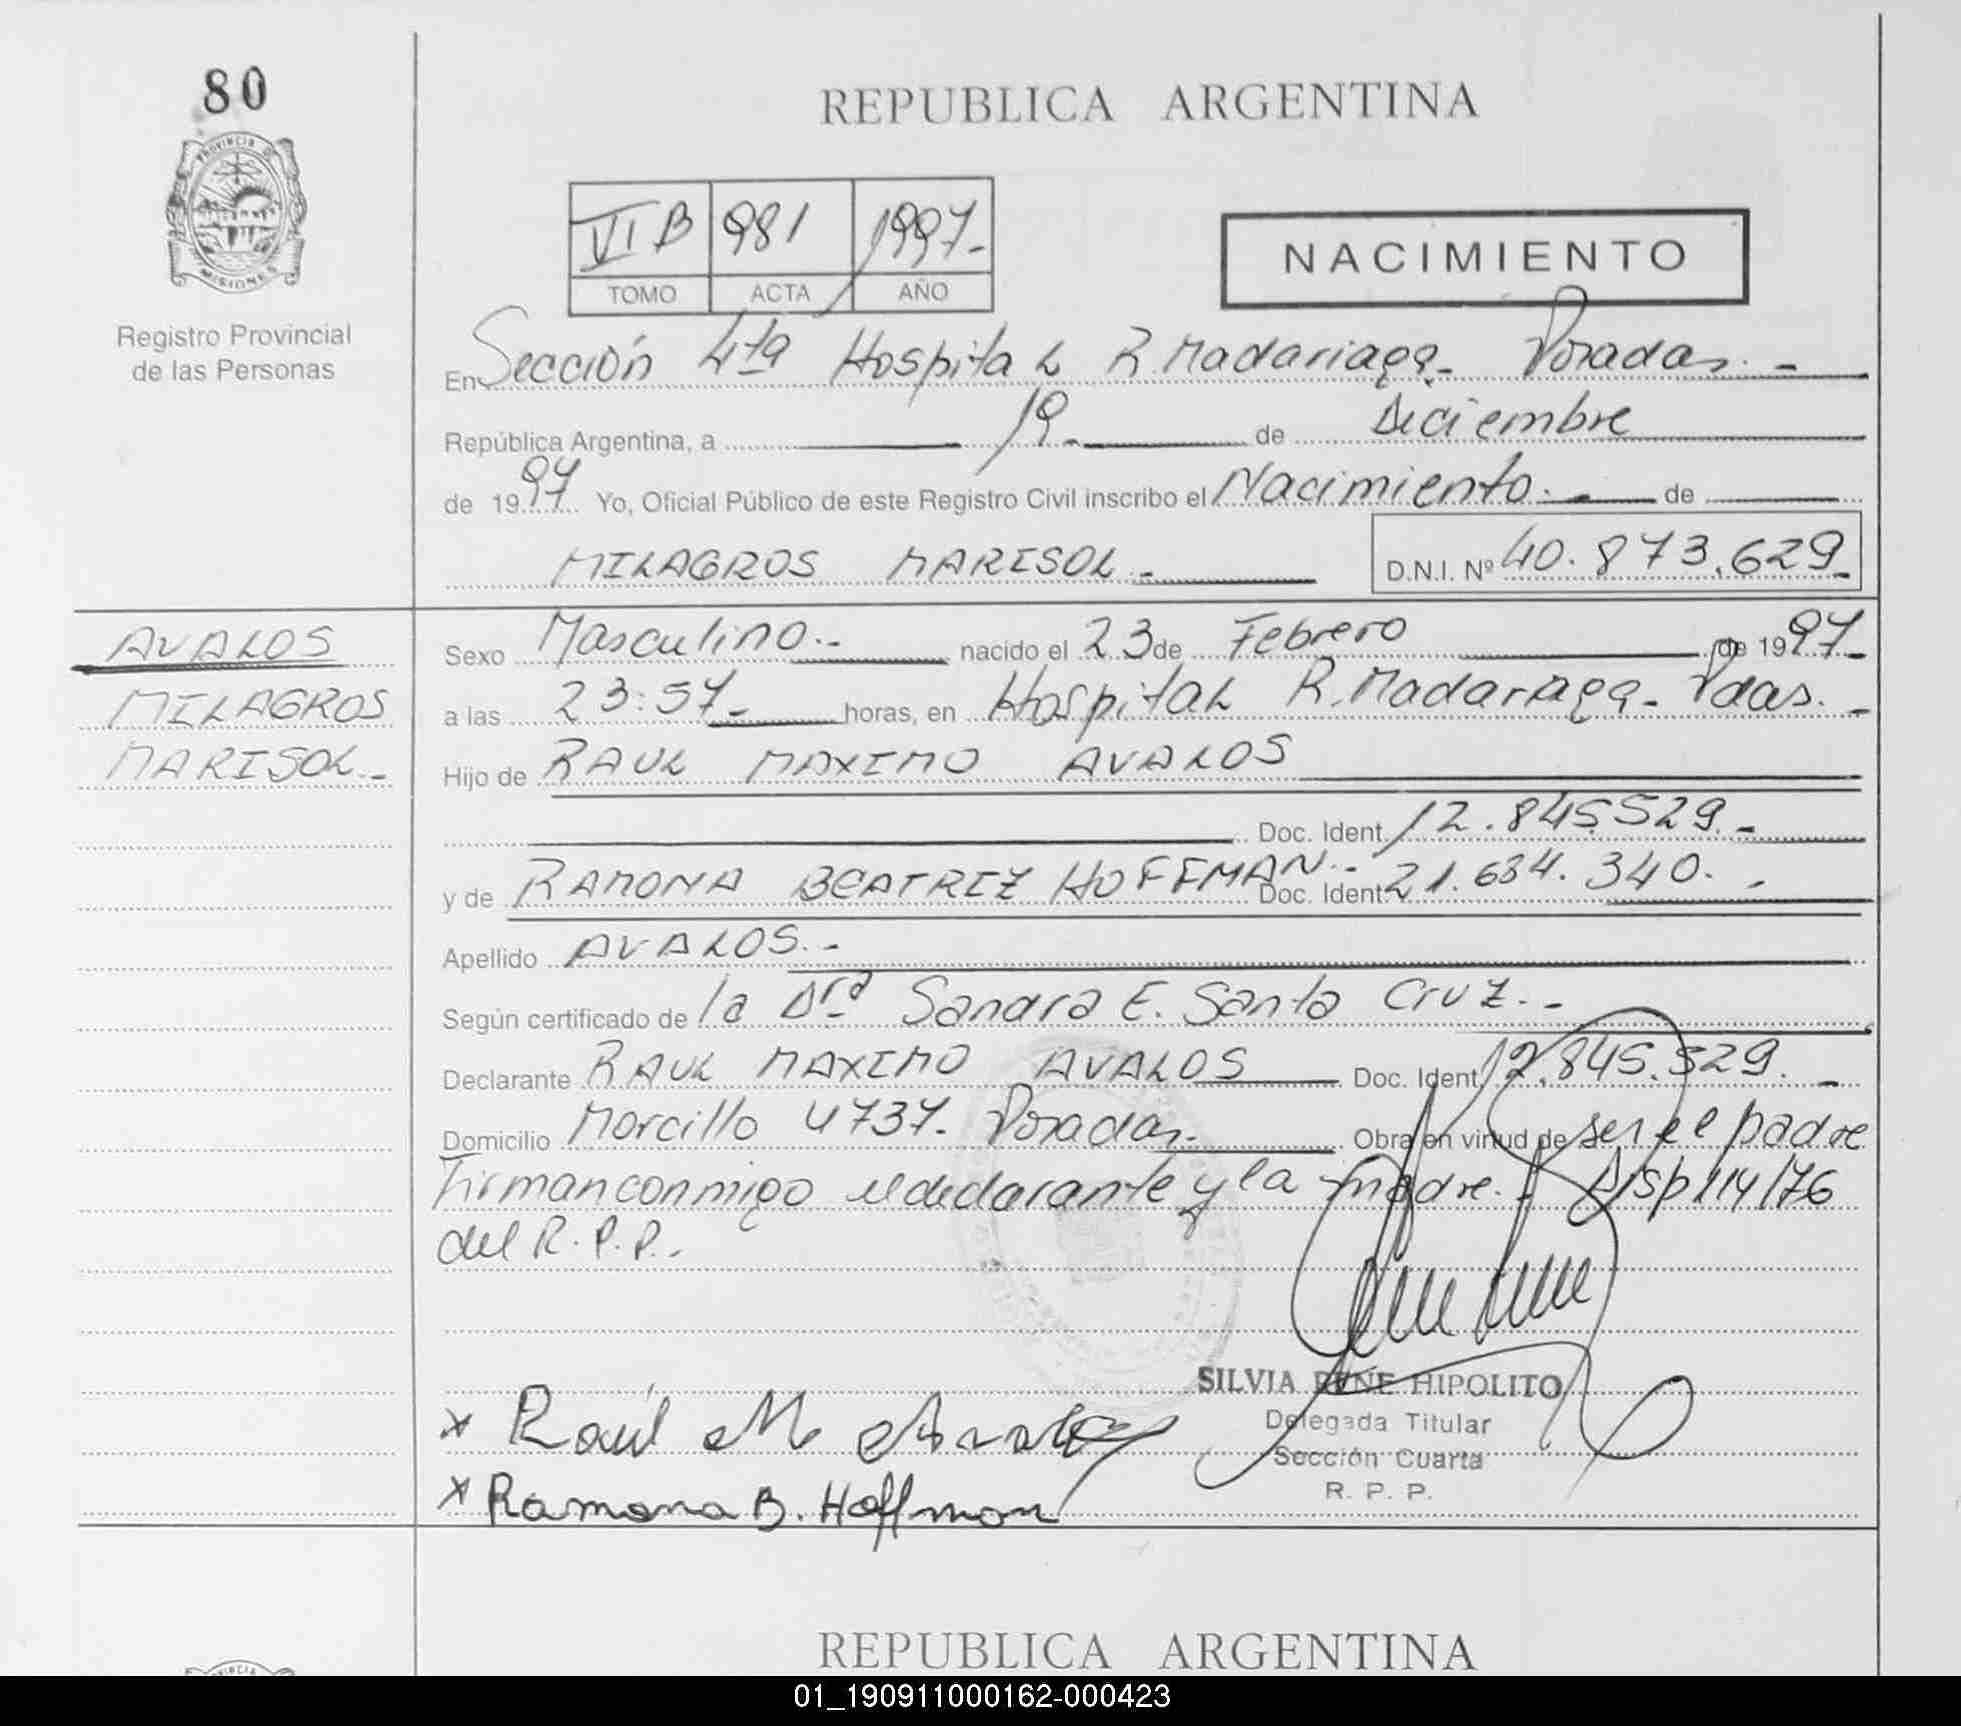 80
REPUBLICA ARGENTINA
PROVINCIA D MISIONES
Registro Provincial
de las Personas
VI B 981 1997.-
TOMO ACTA AÑO
NACIMIENTO
En Sección 4ta Hospital R. Madariaga - Posadas. -
República Argentina, a 19 - de Diciembre
de 1997 Yo, Oficial Público de este Registro Civil inscribo el Nacimiento. - de
MILAGROS MARISOL. - D.N.I. Nº 40.873.629 -
AVALOS
MILAGROS
MARISOL. -
Sexo Masculino. - nacido el 23 de Febrero de 1997 -
a las 23:57 - horas, en Hospital R. Madariaga - Pdas. -
Hijo de RAUL MAXIMO AVALOS
Doc. Ident. 12.845.529. -
y de RAMONA BEATRIZ HOFFMAN. - Doc. Ident. 21.634.340. -
Apellido AVALOS. -
Según certificado de la Dra Sandra E. Santa Cruz. -
Declarante RAUL MAXIMO AVALOS Doc. Ident. 12.845.529. -
Domicilio Morcillo 4737 - Posadas. - Obra en virtud de ser el padre
Firman conmigo el declarante y la madre. - Disp 114/76
del R.P.P. -
SILVIA RENE HIPOLITO
Delegada Titular
Sección Cuarta
R. P. P.
x Raúl M Avalos
x Ramona B. Hoffman
REPUBLICA ARGENTINA
01_190911000162-000423